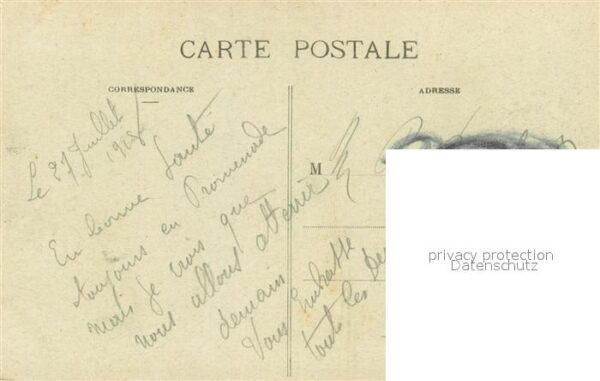 CARTE POSTALE
CORRESPONDANCE
ADRESSE
Le 27 Juillet
1918
En bonne Santé
toujours en Promenade
mais je crois que
nous allons atterrir
demain
Vous Embrasse
tous les deux
M
privacy protection
Datenschutz